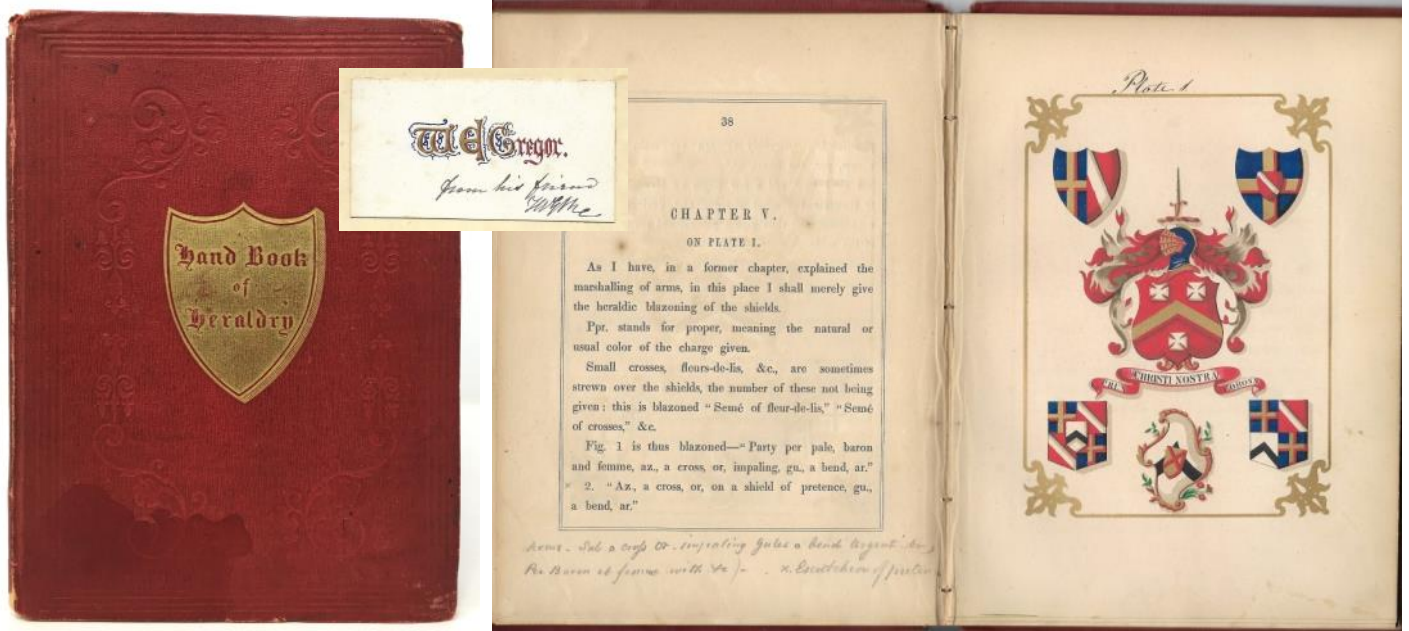 Hand Book
of
Heraldry
Gregor.
from his friend
38
CHAPTER V.
ON PLATE I.
As I have, in a former chapter, explained the
marshalling of arms, in this place I shall merely give
the heraldic blazoning of the shields.
Ppr. stands for proper, meaning the natural or
usual color of the charge given.
Small crosses, fleurs-de-lis, &c., are sometimes
strewn over the shields, the number of these not being
given: this is blazoned “Semé of fleur-de-lis,” “Semé
of crosses,” &c.
Fig. 1 is thus blazoned—“Party per pale, baron
and femme, az., a cross, or, impaling, gu., a bend, ar.”
” 2. “Az., a cross, or, on a shield of pretence, gu.,
a bend, ar.”
a cross Or. impaling Gules a bend Argent
Per Baron et femme with &c x. Escutcheon of
Plate 1
CHRISTI NOSTRA